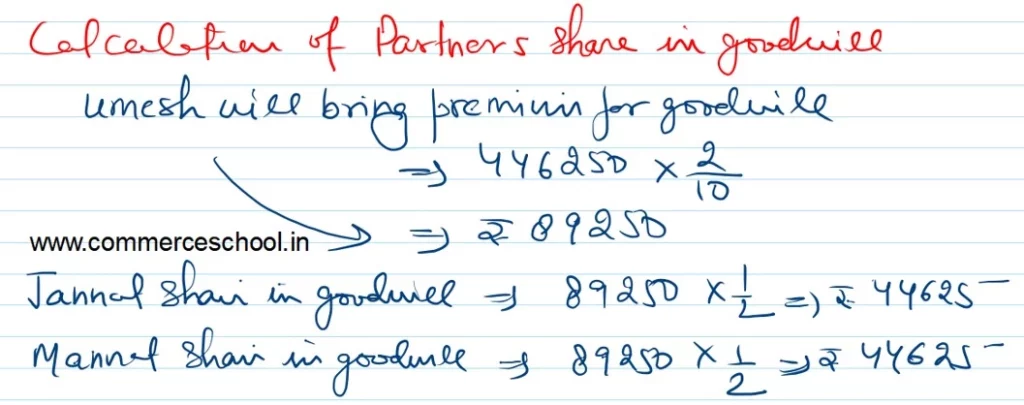 Calculation of Partners share in goodwill
Umesh will bring premium for goodwill
⇒ 446250 × 2/10
⇒ ₹ 89250
www.commerceschool.in
Jannat share in goodwill ⇒ 89250 × 1/2 ⇒ ₹ 44625
Mannat share in goodwill ⇒ 89250 × 1/2 ⇒ ₹ 44625